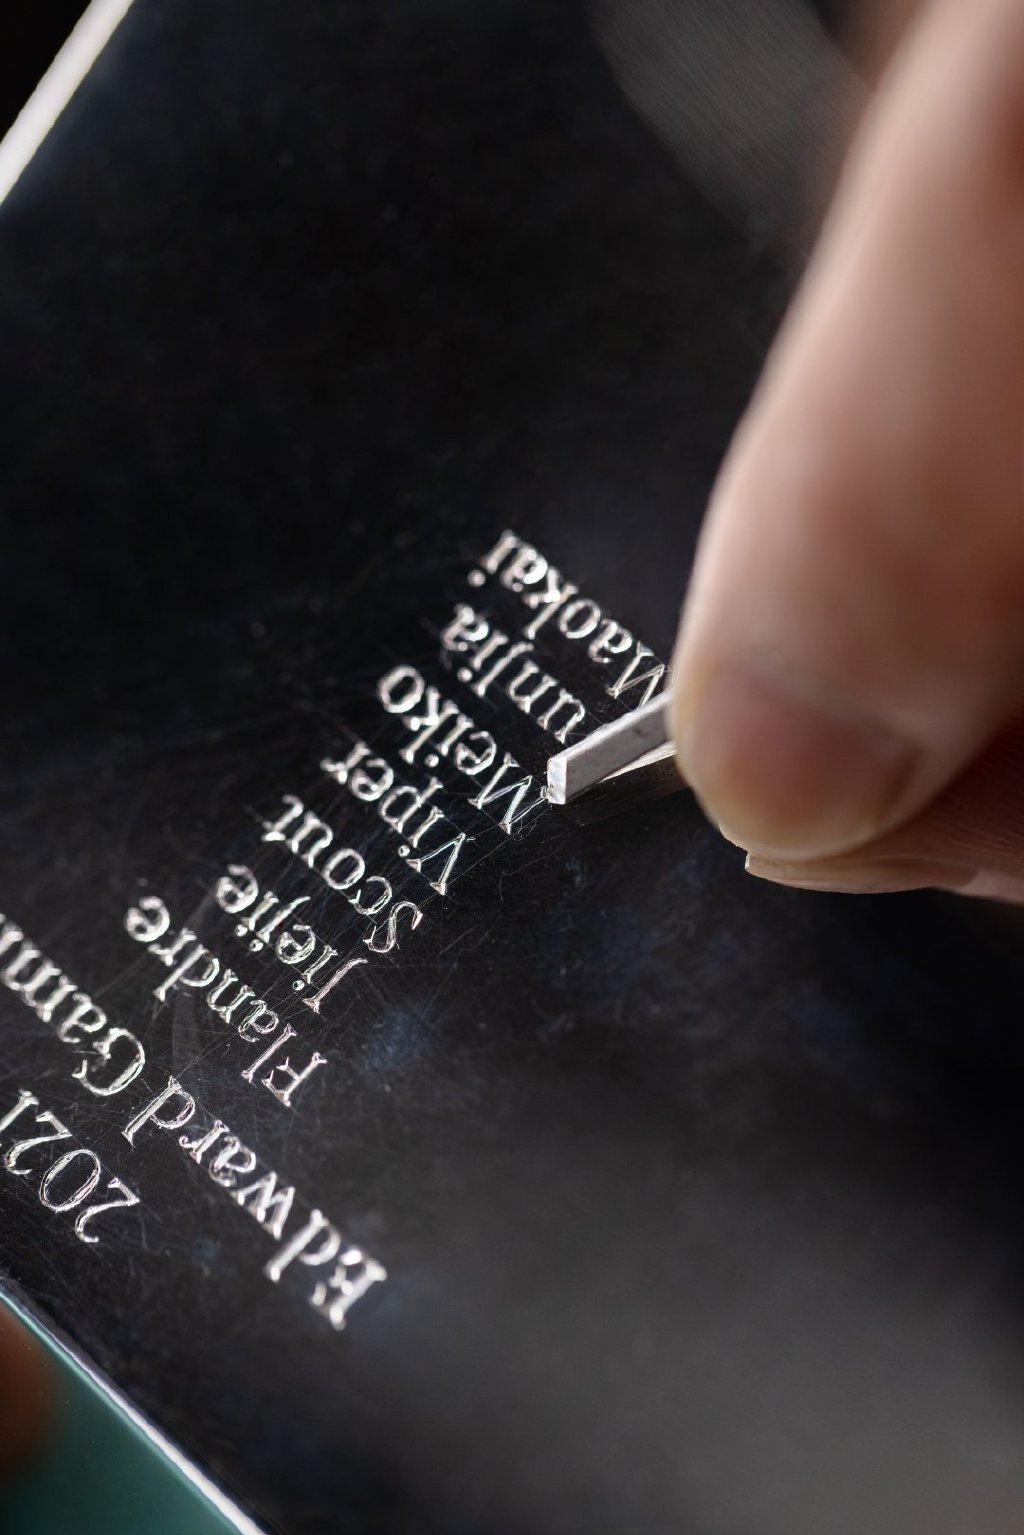 2021
Edward Gami
Flandre
Jiejie
Scout
Viper
Meiko
unJia
Maokai